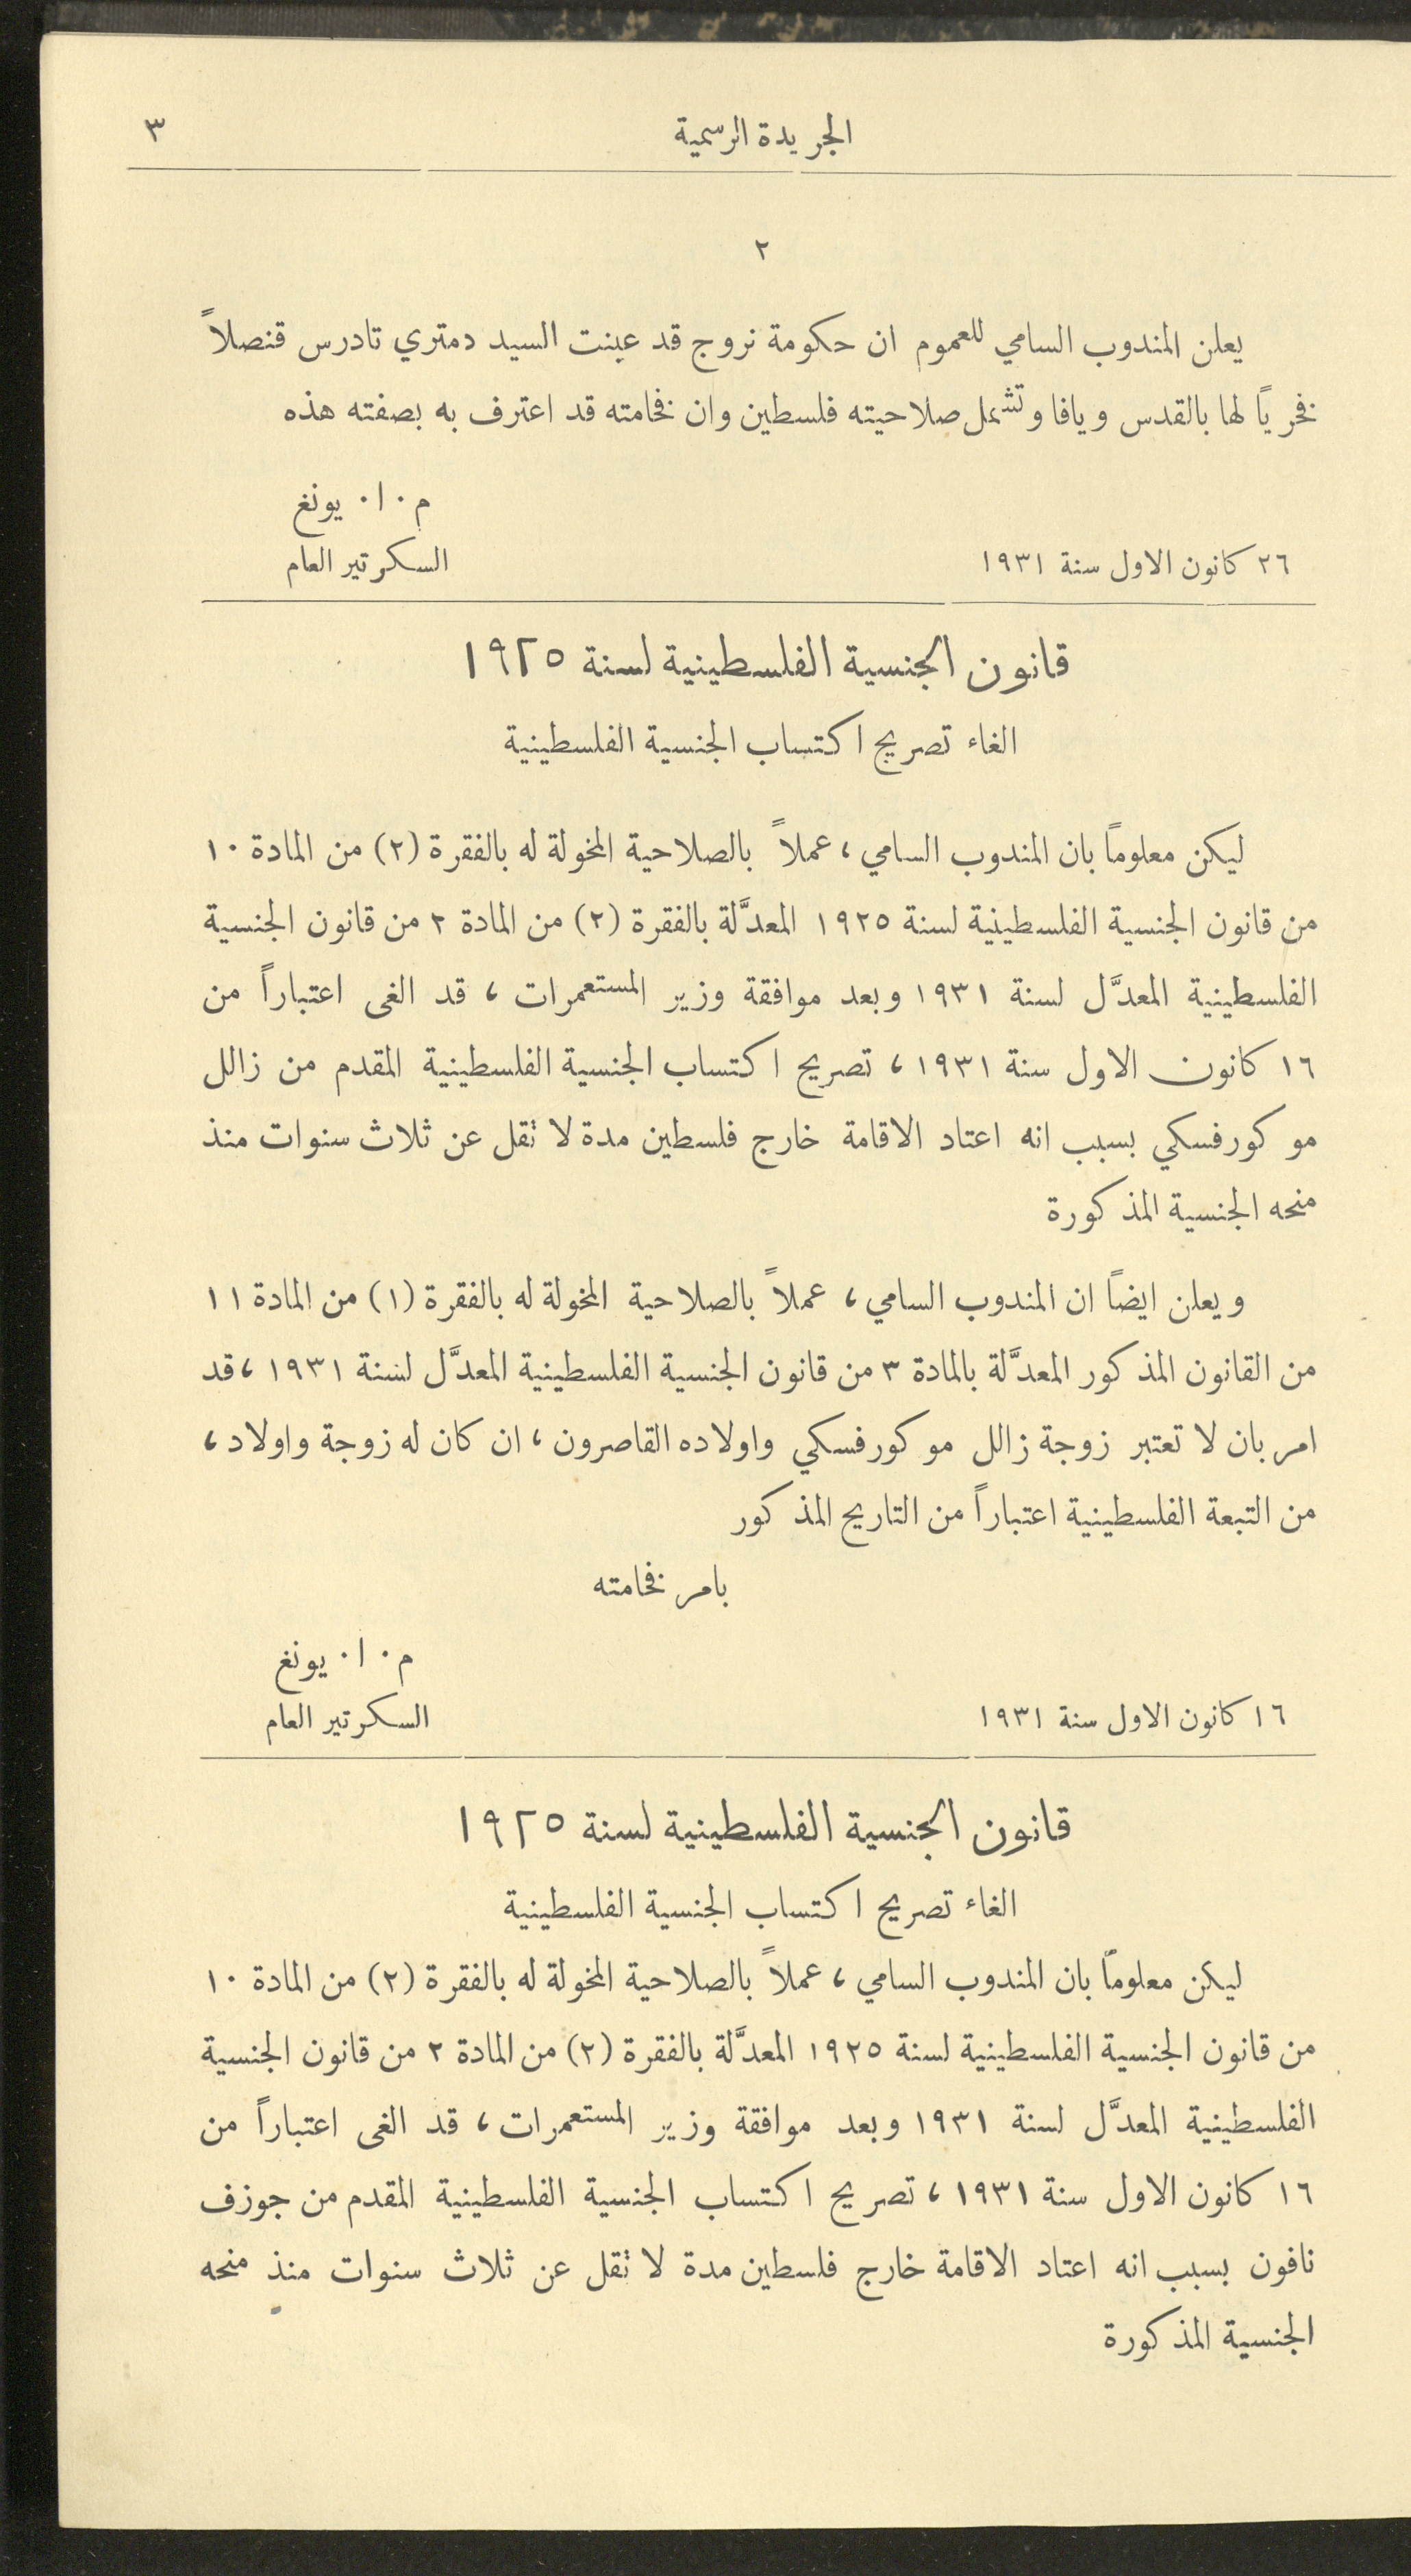 الجريدة الرسمية
٣
٢
يعلن المندوب السامي للعموم ان حكومة نروج قد عينت السيد دمتري تادرس قنصلاً
فخرياً لها بالقدس ويافا وتشمل صلاحيته فلسطين وان فخامته قد اعترف به بصفته هذه
م٠ ا٠ يونغ
٢٦ كانون الاول سنة ١٩٣١
السكرتير العام
قانون الجنسية الفلسطينية لسنة ١٩٢٥
الغاء تصريح اكتساب الجنسية الفلسطينية
ليكن معلوماً بان المندوب السامي، عملاً بالصلاحية المخولة له بالفقرة (٢) من المادة ١٠
من قانون الجنسية الفلسطينية لسنة ١٩٢٥ المعدَّلة بالفقرة (٢) من المادة ٢ من قانون الجنسية
الفلسطينية المعدَّل لسنة ١٩٣١ وبعد موافقة وزير المستعمرات، قد الغى اعتباراً من
١٦ كانون الاول سنة ١٩٣١، تصريح اكتساب الجنسية الفلسطينية المقدم من زالل
موكورفسكي بسبب انه اعتاد الاقامة خارج فلسطين مدة لا تقل عن ثلاث سنوات منذ
منحه الجنسية المذكورة
ويعلن ايضاً ان المندوب السامي، عملاً بالصلاحية المخولة له بالفقرة (١) من المادة ١١
من القانون المذكور المعدَّلة بالمادة ٣ من قانون الجنسية الفلسطينية المعدَّل لسنة ١٩٣١، قد
امر بان لا تعتبر زوجة زالل موكورفسكي واولاده القاصرون، ان كان له زوجة واولاد،
من التبعة الفلسطينية اعتباراً من التاريح المذكور
بامر فخامته
م٠ ا٠ يونغ
١٦ كانون الاول سنة ١٩٣١
السكرتير العام
قانون الجنسية الفلسطينية لسنة ١٩٢٥
الغاء تصريح اكتساب الجنسية الفلسطينية
ليكن معلوماً بان المندوب السامي، عملاً بالصلاحية المخولة له بالفقرة (٢) من المادة ١٠
من قانون الجنسية الفلسطينية لسنة ١٩٢٥ المعدَّلة بالفقرة (٢) من المادة ٢ من قانون الجنسية
الفلسطينية المعدَّل لسنة ١٩٣١ وبعد موافقة وزير المستعمرات، قد الغى اعتباراً من
١٦ كانون الاول سنة ١٩٣١، تصريح اكتساب الجنسية الفلسطينية المقدم من جوزف
نافون بسبب انه اعتاد الاقامة خارج فلسطين مدة لا تقل عن ثلاث سنوات منذ منحه
الجنسية المذكورة